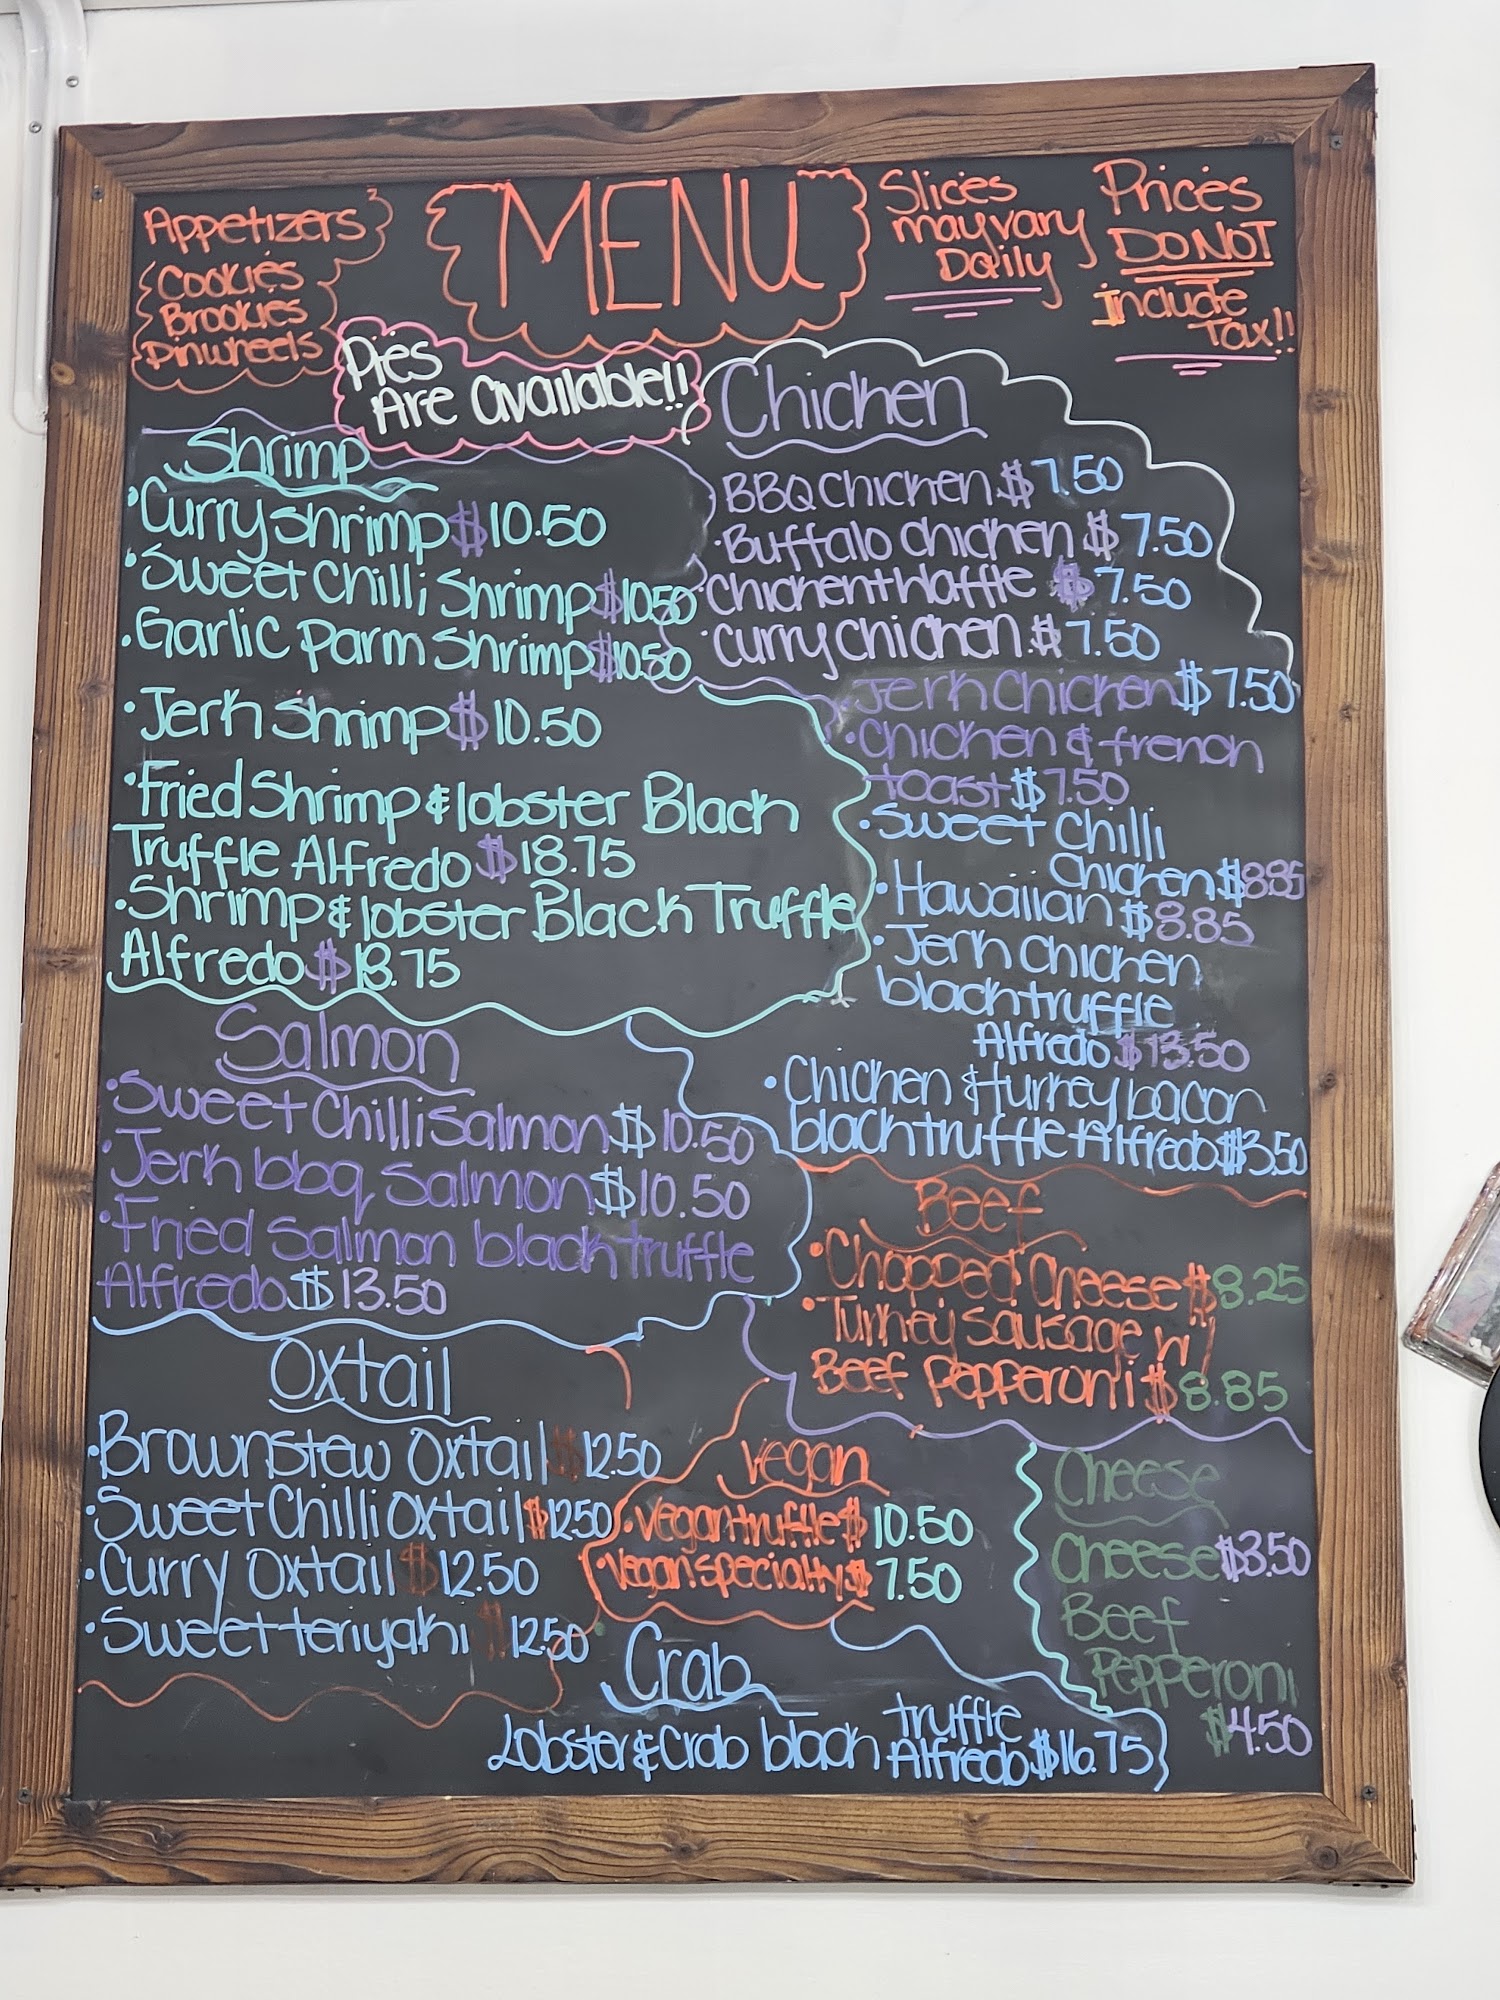 MENU
Appetizers
Cookies
Brookies
Pinwheels
Slices
may vary
Daily
Prices
DO NOT
include
Tax!!
Pies
Are available!!
Shrimp
•Curry shrimp $10.50
•Sweet Chilli Shrimp $10.50
•Garlic Parm Shrimp $10.50
•Jerk Shrimp $10.50
•Fried Shrimp & lobster Black
Truffle Alfredo $18.75
•Shrimp & lobster Black Truffle
Alfredo $18.75
Chicken
BBQ Chicken $7.50
•Buffalo chicken $7.50
•Chicken+Waffle $7.50
•Curry chicken $7.50
•Jerk Chicken $7.50
•Chicken & french
toast $7.50
•Sweet Chilli
Chicken $8.85
•Hawaiian $8.85
•Jerk Chicken
black truffle
Alfredo $13.50
•Chicken & turkey bacon
black truffle Alfredo $13.50
Salmon
•Sweet Chilli Salmon $10.50
•Jerk bbq Salmon $10.50
•Fried Salmon black truffle
Alfredo $13.50
Beef
•Chopped Cheese $8.25
•Turkey sausage w/
Beef Pepperoni $8.85
Oxtail
•Brownstew Oxtail $12.50
•Sweet Chilli Oxtail $12.50
•Curry Oxtail $12.50
•Sweet teriyaki $12.50
Vegan
•Vegan truffle $10.50
•Vegan specialty $7.50
Cheese
Cheese $3.50
Beef
Pepperoni
$4.50
Crab
Lobster & Crab black truffle
Alfredo $16.75